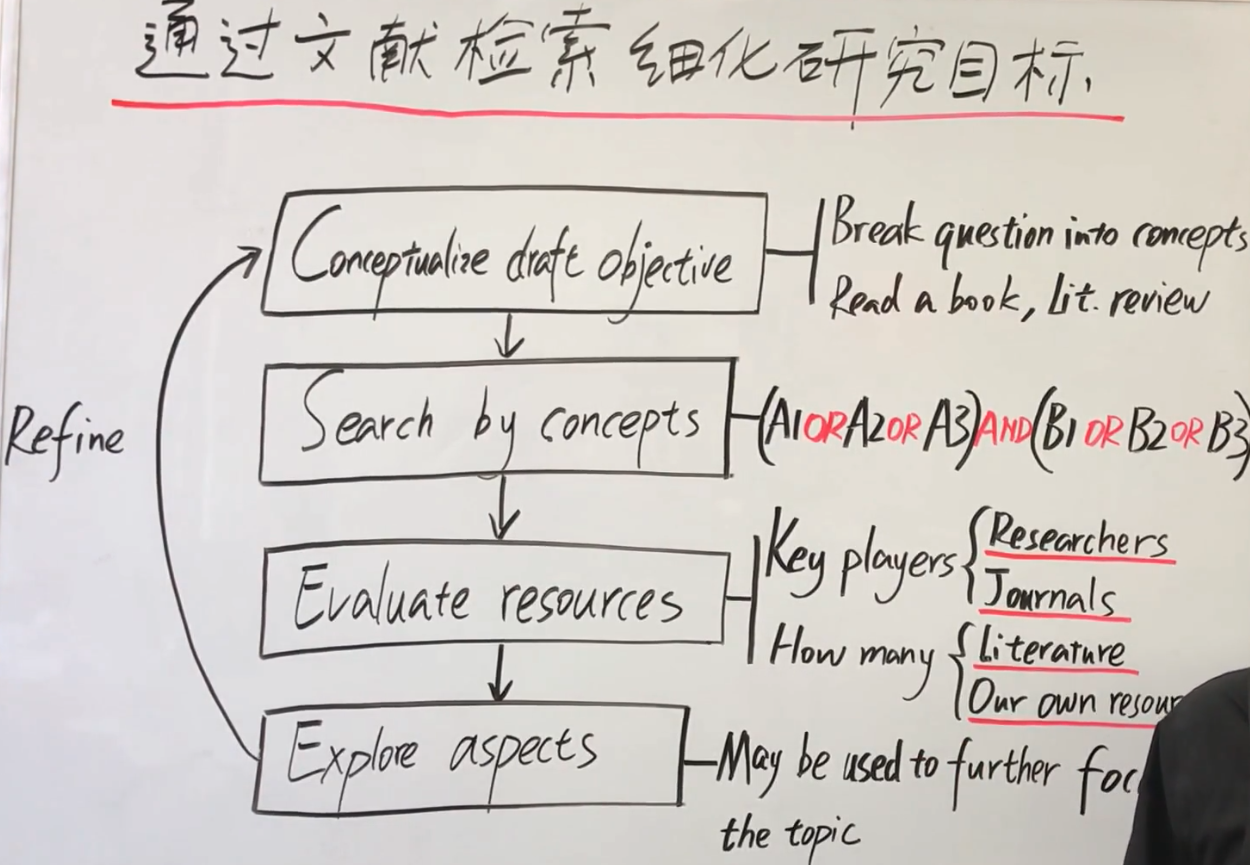 通过文献检索细化研究目标
Conceptualize draft objective
Break question into concepts
Read a book, Lit. review
Refine
Search by concepts
(A1 OR A2 OR A3) AND (B1 OR B2 OR B3)
Evaluate resources
Key players
Researchers
Journals
How many
Literature
Our own
Explore aspects
May be used to further
the topic